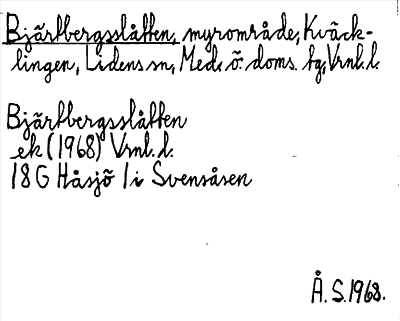 Bjärtbergsslåtten, myrområde, Kväck-
lingen, Lidens sn, Med. ö. doms. tg, Vrnl. l.
Bjärtbergsslåtten
ek (1968) Vrnl. l.
18 G Håsjö 1 i Svensåsen
Å. S. 1968.